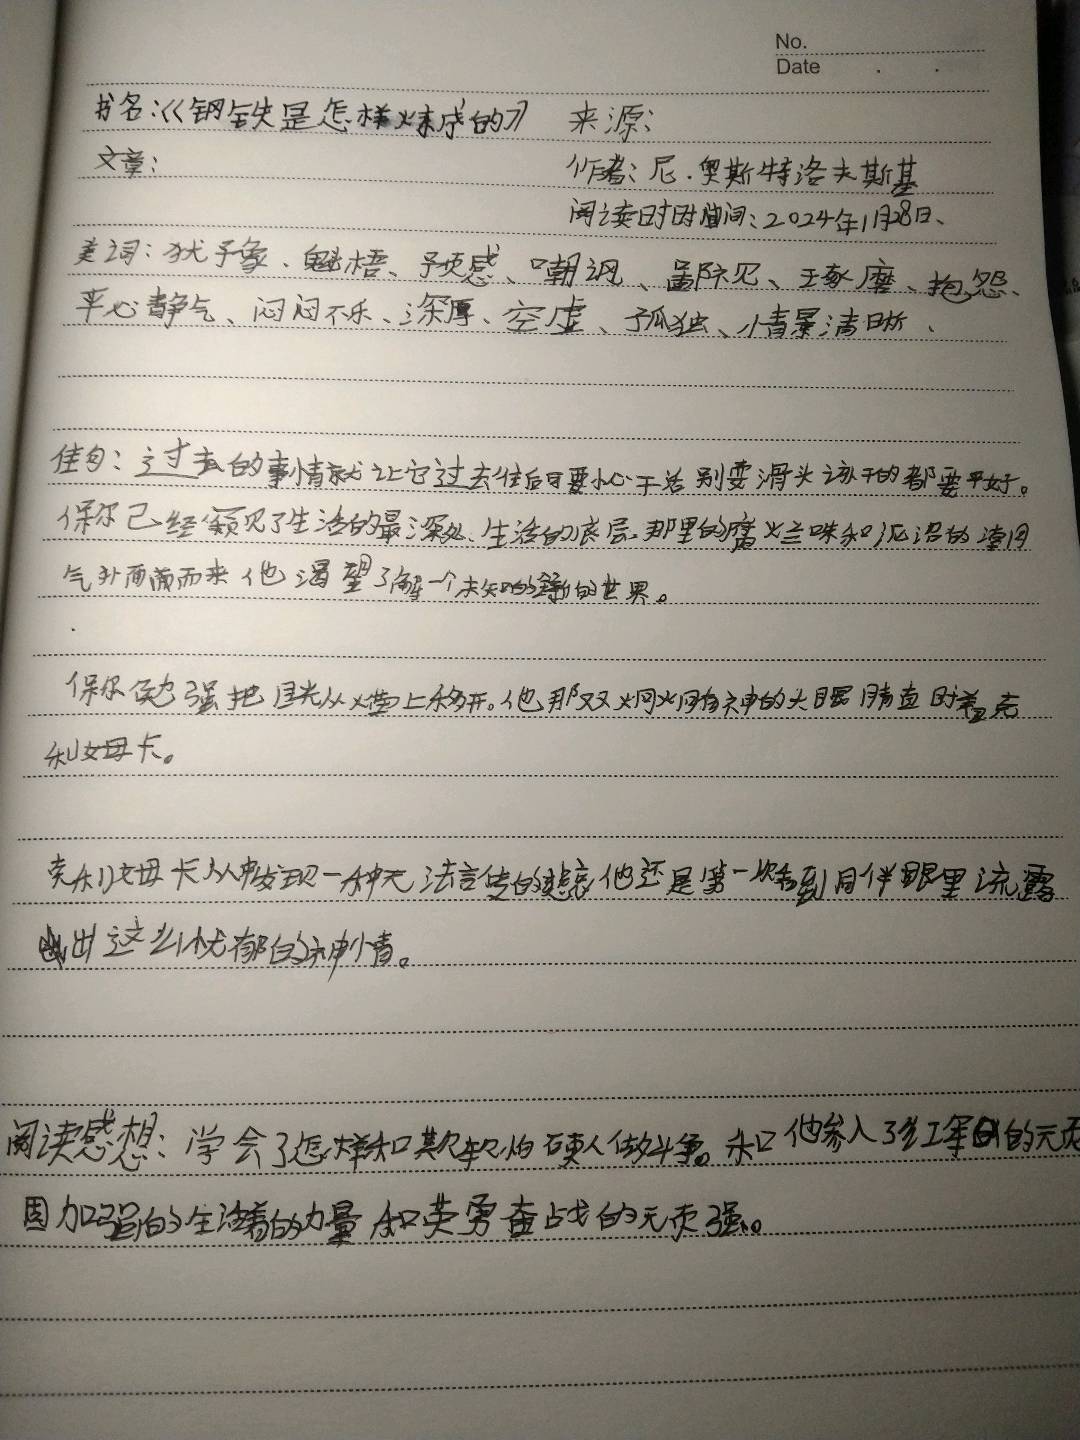 No.
Date
书名:《钢铁是怎样炼成的》 来源:
文章: 作者:尼·奥斯特洛夫斯基
阅读时间:2024年1月28日、
美词:犹予象、魁梧、预感、嘲讽、鄙见、琢磨、抱怨、
平心静气、闷闷不乐、深厚、空虚、孤独、情景清晰、
佳句:过去的事情就让它过去往后可要小心干活别耍滑头该干的都要干好。
保尔已经窥见了生活的最深处、生活的底层、那里的腐烂味和泥沼的潮
气扑面而来他渴望了解一个未知的全新的世界。
保尔勉强把目光从火堂上移开。他那双炯炯有神的大眼睛直盯着克
利女母卡。
克利女母卡从中发现一种无法言传的悲哀他还是第一次看到同伴眼里流露
出这么忧郁的神情。
阅读感想:学会了怎样和欺软怕硬人做斗争。和他参入了红军的的顽
固加强的生活着的力量和英勇奋战的顽强。